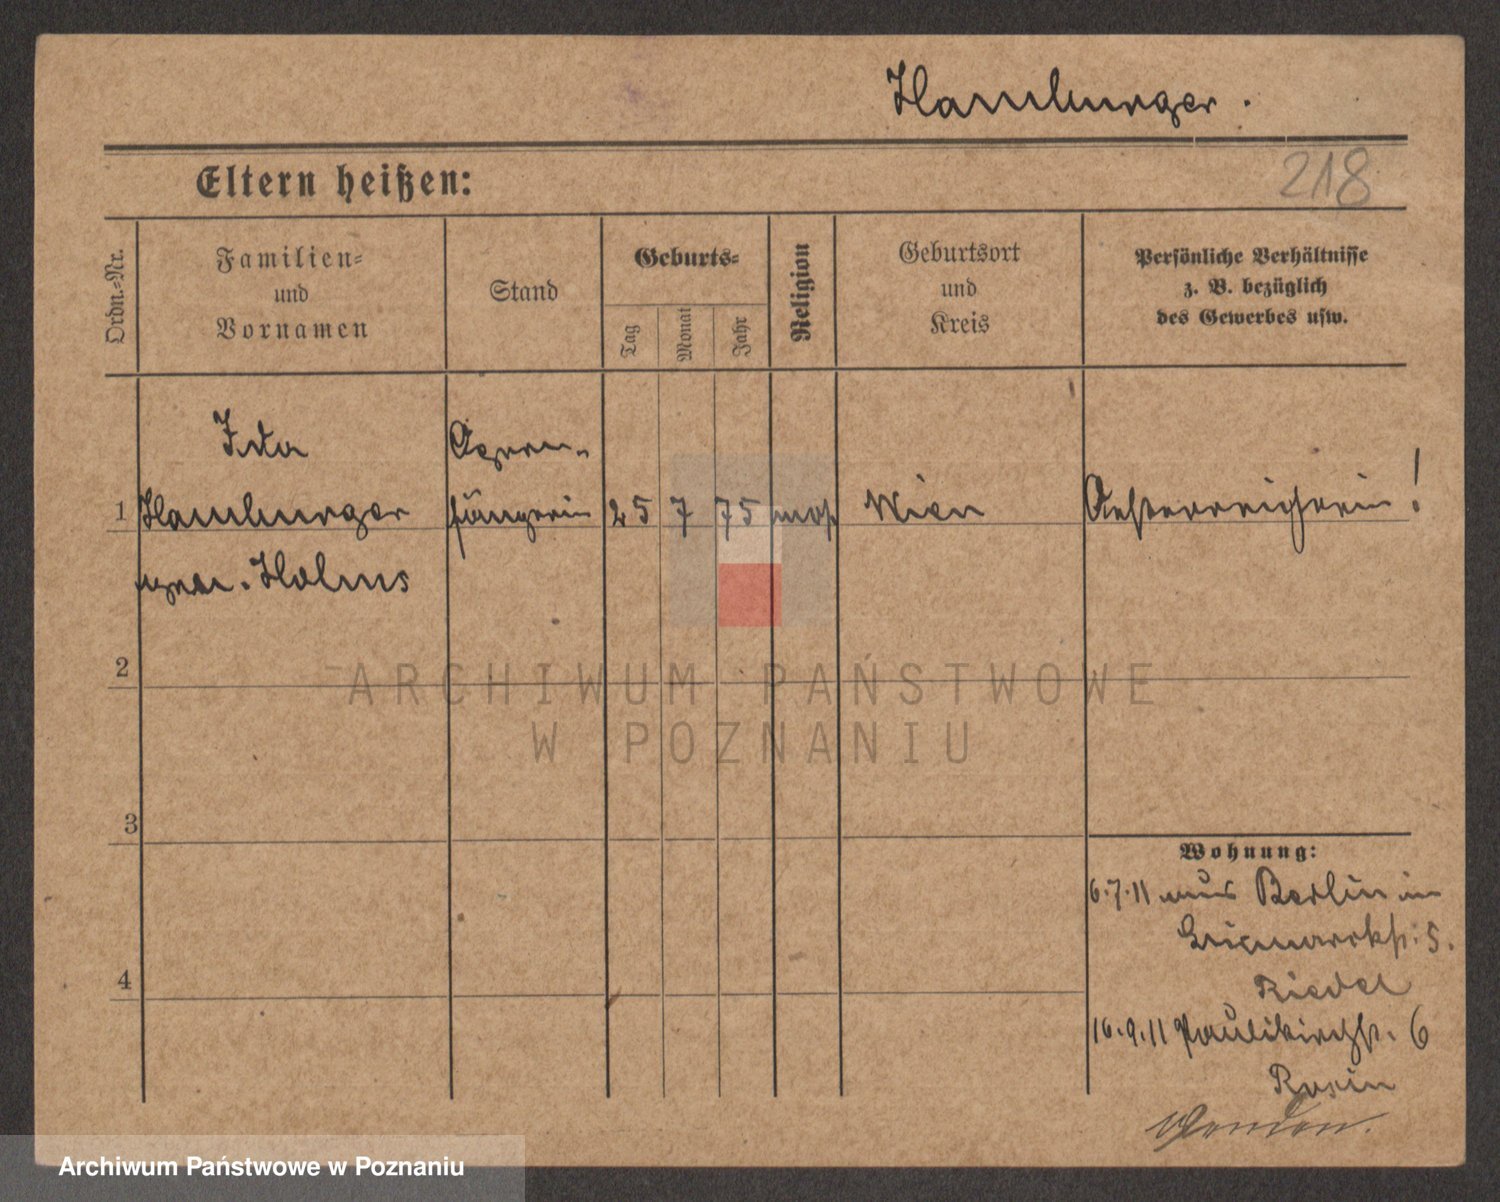 Hamburger.
218
Eltern heißen:
Ordn.-Nr.
Familien-
und
Vornamen
Stand
Geburts-
Tag
Monat
Jahr
Religion
Geburtsort
und
Kreis
Persönliche Verhältnisse
z. B. bezüglich
des Gewerbes usw.
Ida
Opern-
1 Hamburger sängerin 25 7 75 mos Wien Oesterreicherin!
Holms
2
3
4
ARCHIWUM PAŃSTWOWE
W POZNANIU
Wohnung:
6.7.11 aus Berlin in
Bismarckstr. 5.
Riedel
16.9.11 Paulikirchstr. 6
Rosin
Wenden.
Archiwum Państwowe w Poznaniu